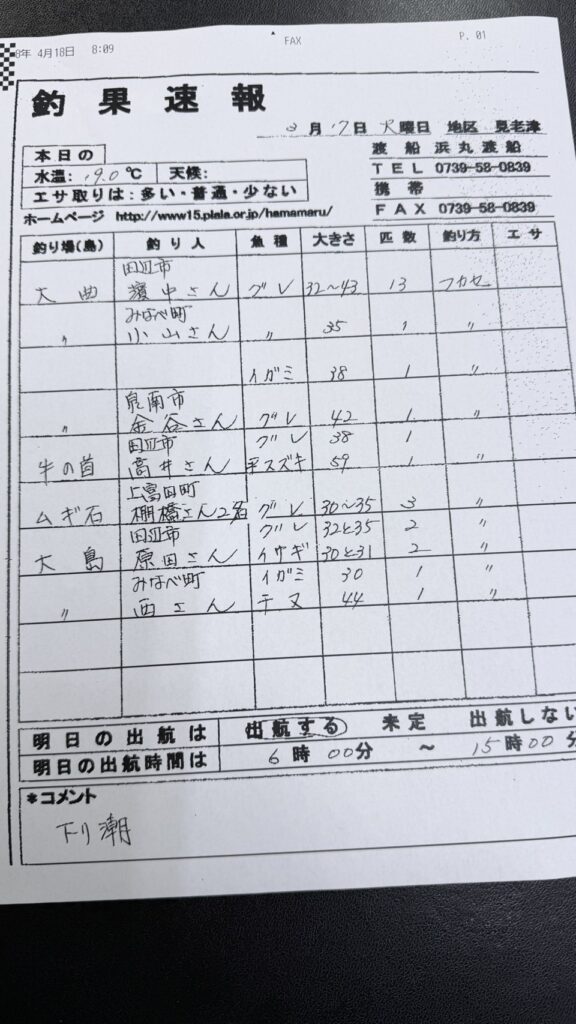 8年 4月18日 8:09 FAX P. 01
釣果速報
月 17日 火曜日 地区 見老津
本日の
水温: 19.0 ℃ 天候:
エサ取りは:多い・普通・少ない
渡船 浜丸渡船
TEL 0739-58-0839
携帯
FAX 0739-58-0839
ホームページ http://www15.plala.or.jp/hamamaru/
釣り場(島) 釣り人 魚種 大きさ 匹数 釣り方 エサ
田辺市
大曲 濱中さん グレ 32~43 13 フカセ
みなべ町
〃 小山さん 〃 35 1 〃
イガミ 38 1 〃
泉南市
〃 金谷さん グレ 42 1 〃
田辺市 グレ 38 1
牛の首 高井さん 平スズキ 59 1 〃
上富田町
ムギ石 棚橋さん2名 グレ 30~35 3 〃
田辺市 グレ 32と35 2 〃
大島 原田さん イサギ 30と31 2 〃
みなべ町 イガミ 30 1 〃
〃 西さん チヌ 44 1 〃
明日の出航は 出航する 未定 出航しない
明日の出航時間は 6時00分 ~ 15時00分
*コメント
下り潮